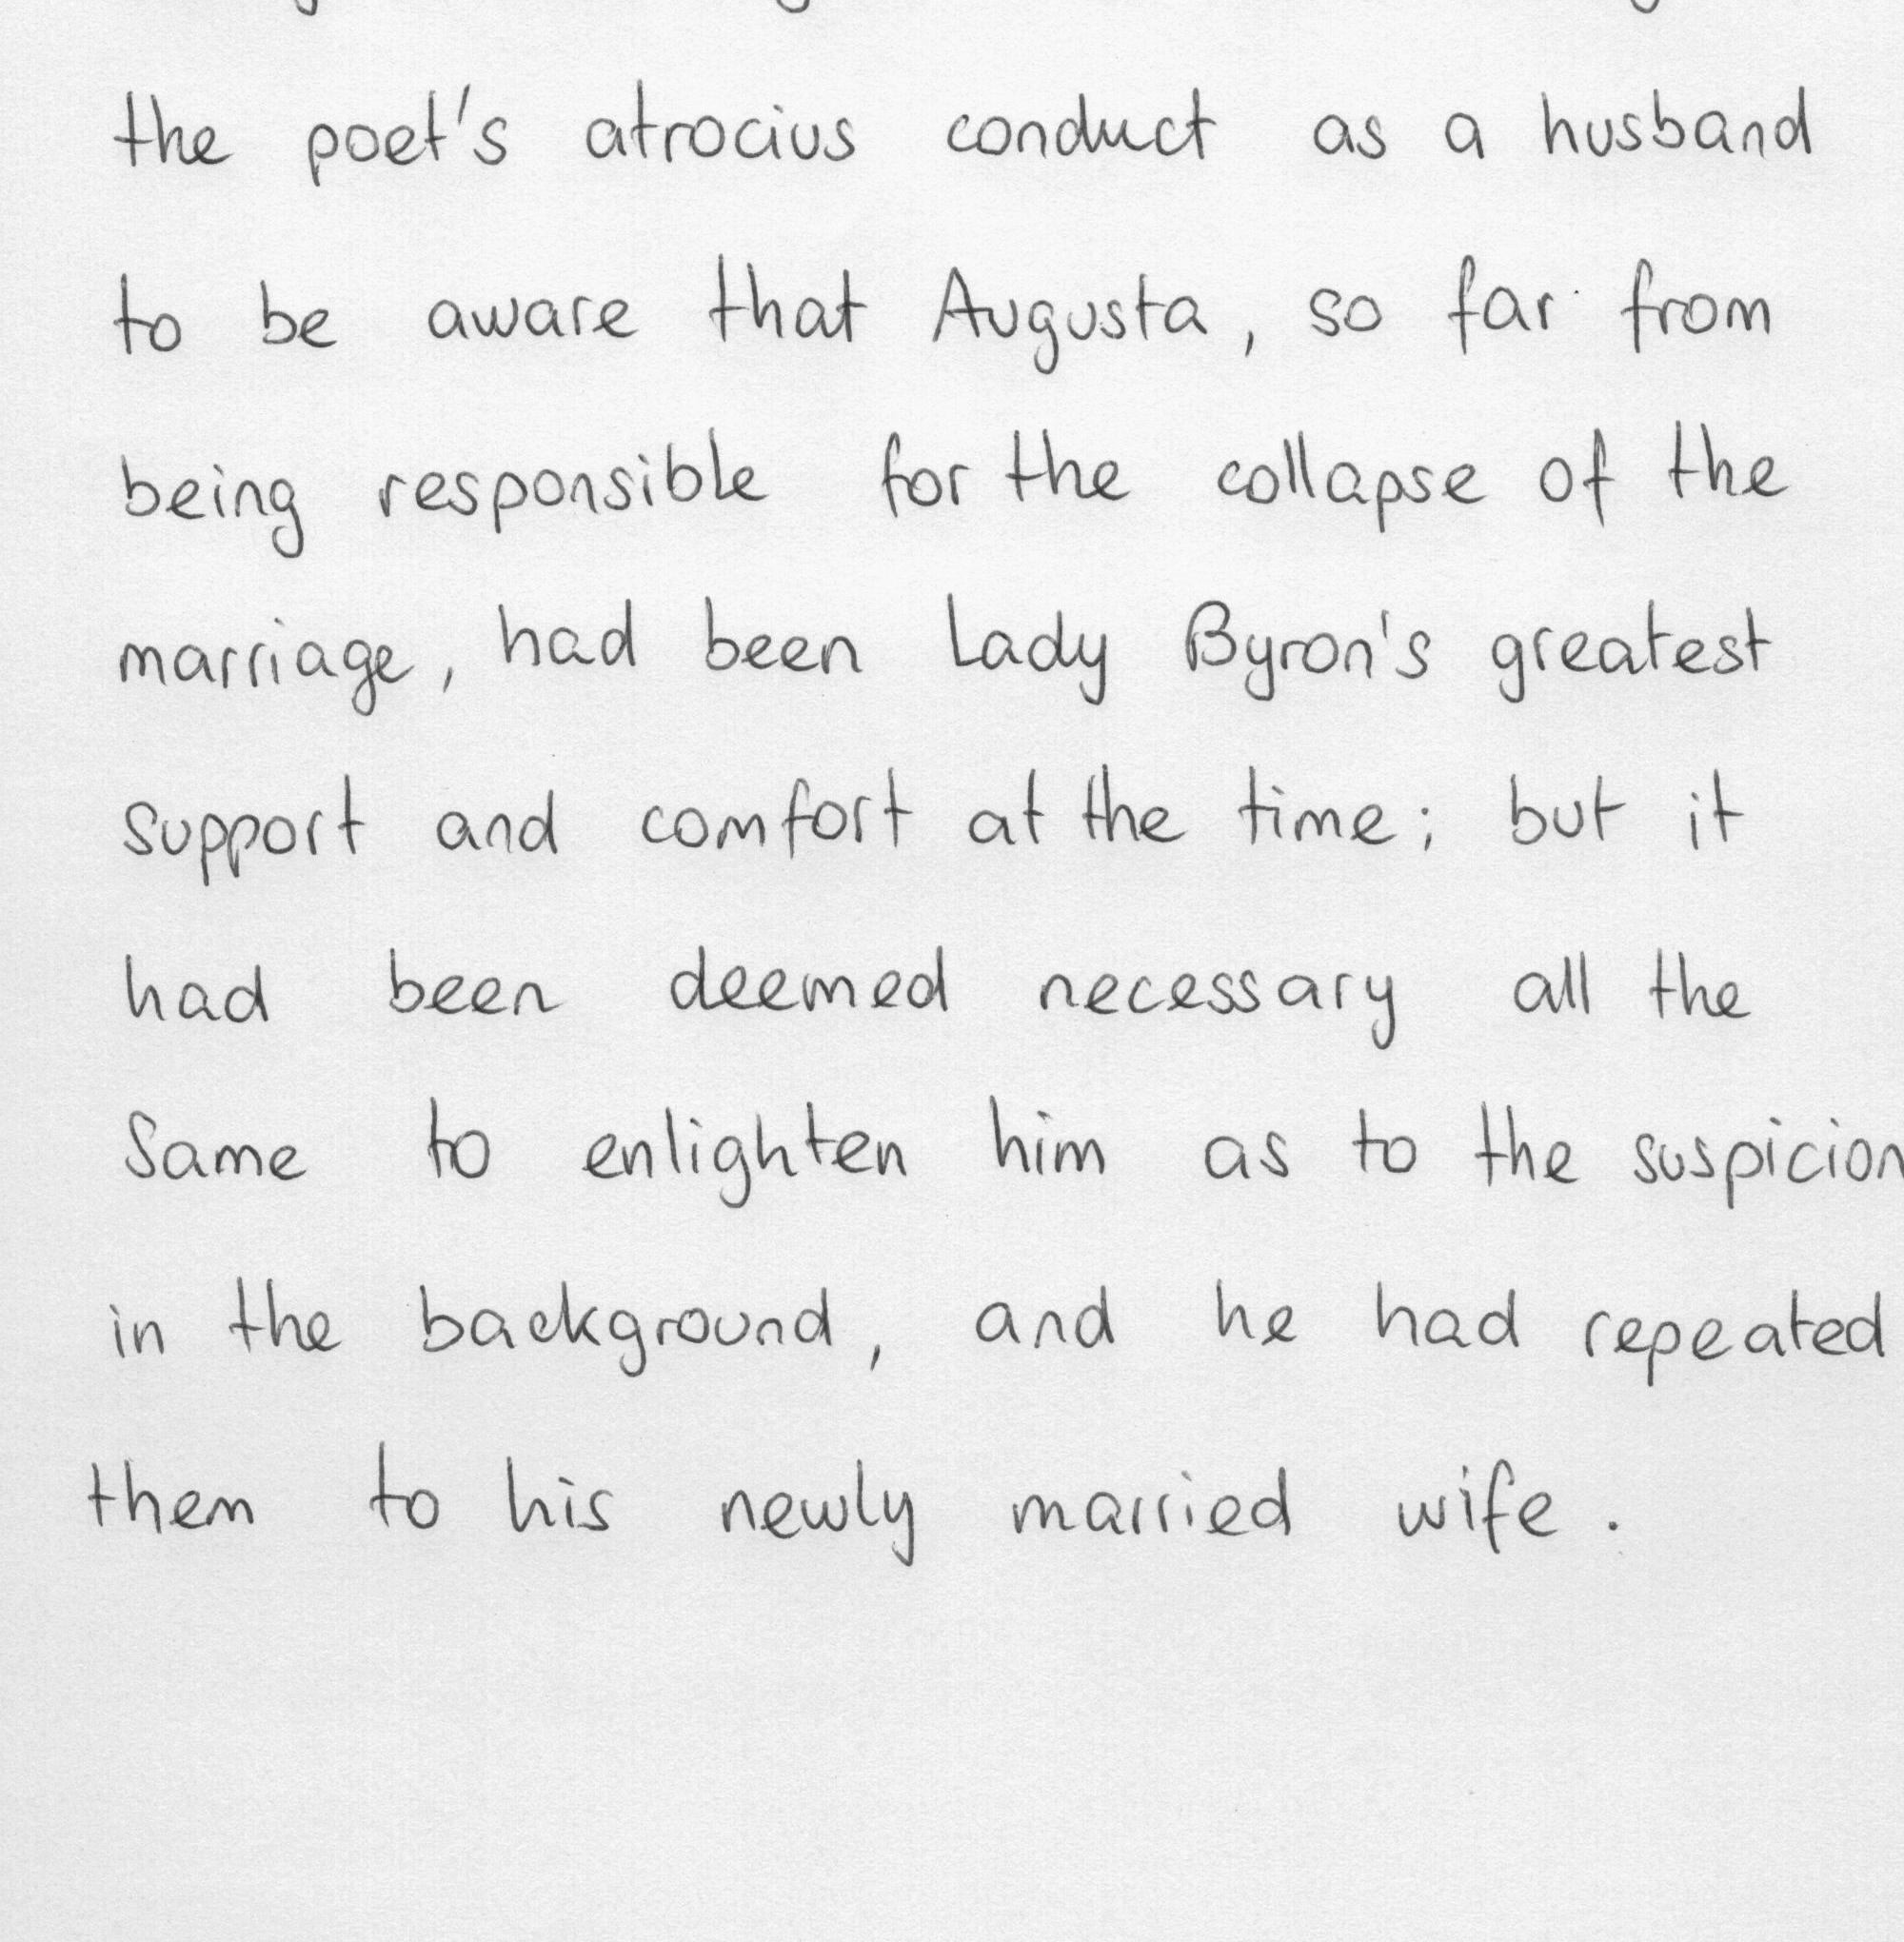 the poet's atrocius conduct as a husband
to be aware that Augusta, so far from
being responsible for the collapse of the
marriage, had been Lady Byron's greatest
support and comfort at the time; but it
had been deemed necessary all the
Same to enlighten him as to the suspicion
in the background, and he had repeated
them to his newly married wife.